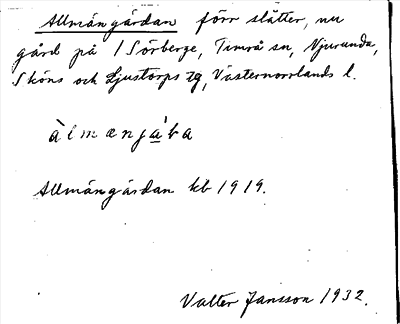 Allmängårdan förr slåtter, nu
gård på / Sörberge, Timrå sn, Njurunda,
Sköns och Ljustorps tg, Västernorrlands l.
Allmängårdan kb 1919.
Valter Jansson 1932.